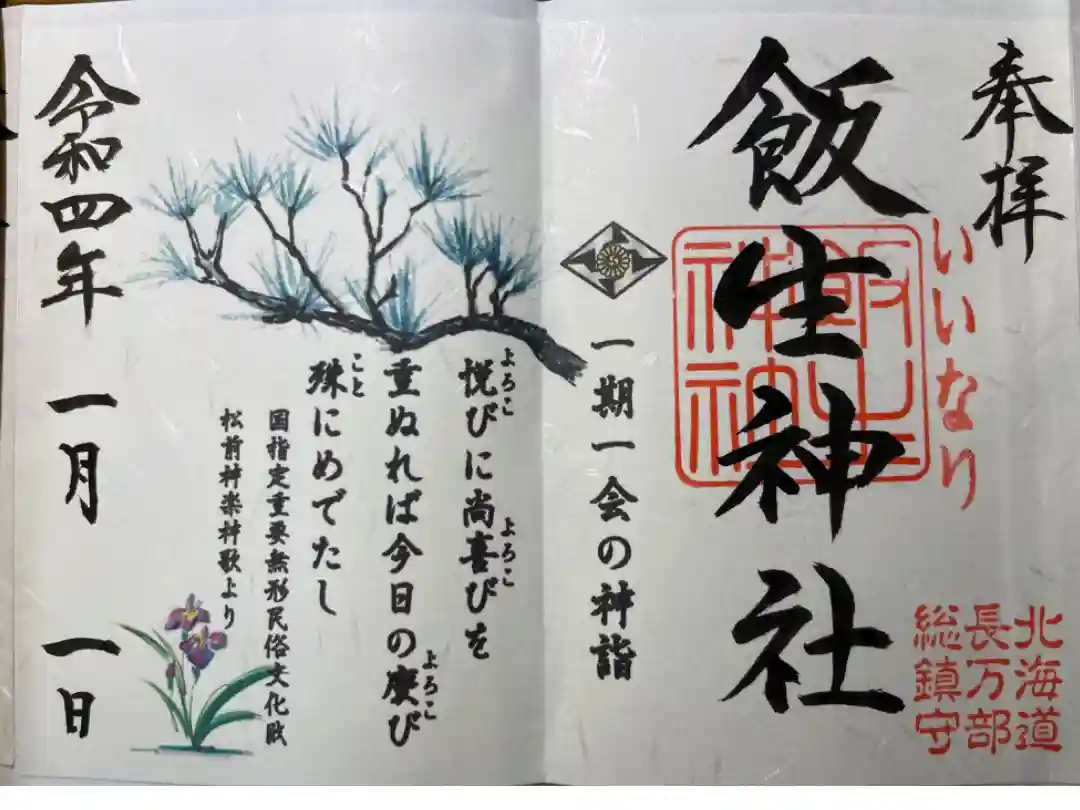 奉拝
いいなり
北海道
長万部
総鎮守
飯生神社
飯生
神社
一期一会の神詣
悦びに尚喜びを
よろこ
よろこ
重ぬれば今日の慶び
よろこ
殊にめでたし
こと
国指定重要無形民俗文化財
松前神楽神歌より
令和四年 一月 一日